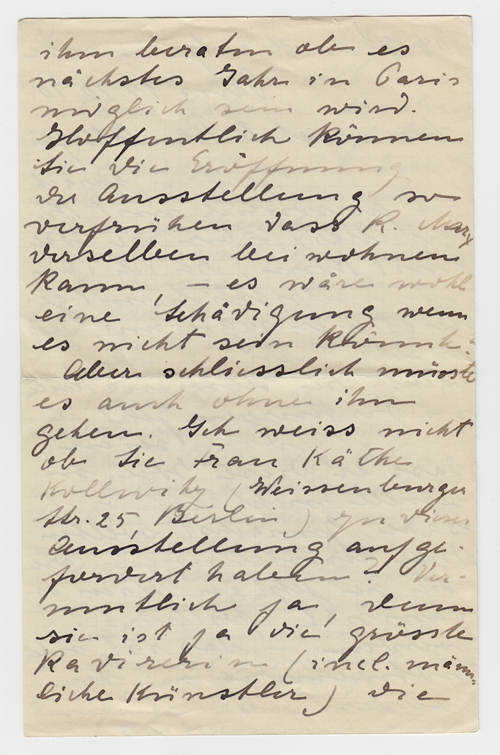 ihm beraten ob es
nächstes Jahr in Paris
möglich sein wird.
Hoffentlich können
Sie die Eröffnung
der Ausstellung so
verfrühen dass R. Marx
derselben beiwohnen
kann, – es wäre wohl
eine Schädigung wenn
es nicht sein könnte.
Aber schliesslich müsste
es auch ohne ihm
gehen. Ich weiss nicht
ob Sie Frau Käthe
Kollwitz (Weissenburger
Str. 25, Berlin) zu dieser
Ausstellung aufge-
fordert haben? Ver-
mutlich ja, denn
sie ist ja die grösste
Radirerin (incl. männ-
liche Künstler) die